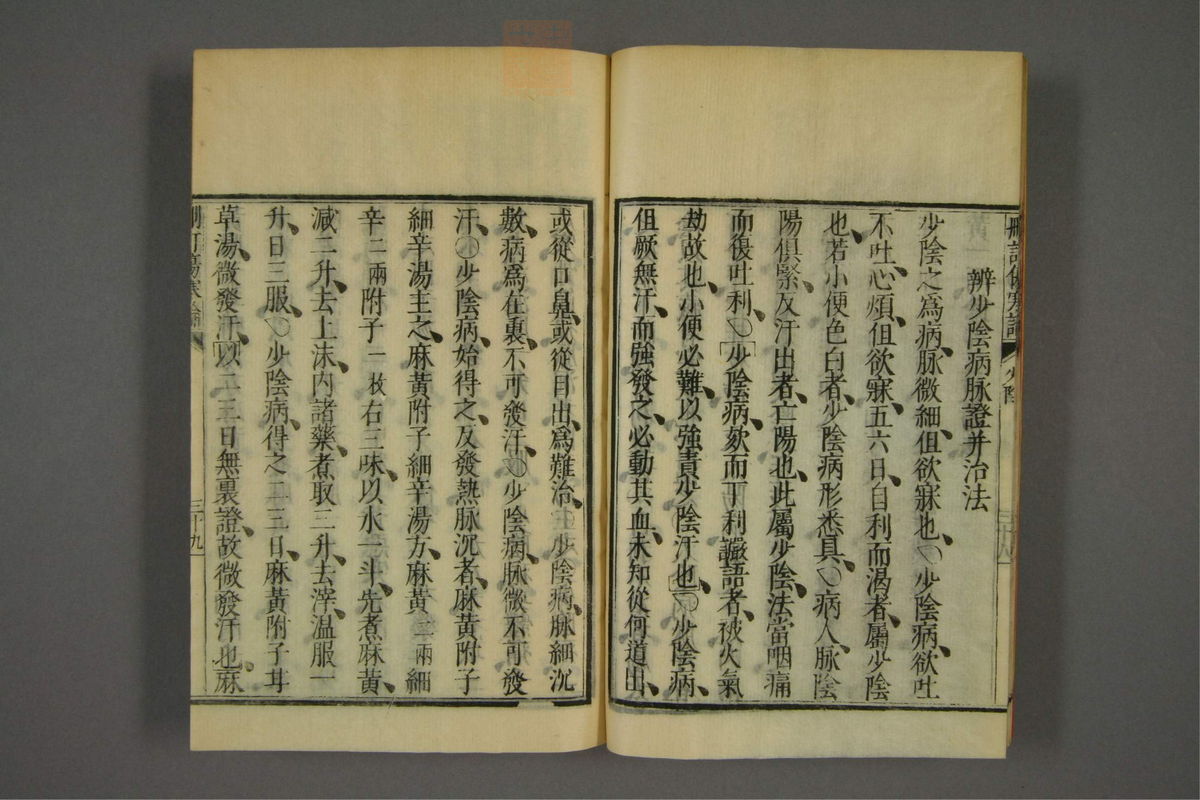 刪訂傷寒論
少陰
辨少陰病脉證并治法
少陰之爲病、脉微細、但欲寐也、〇少陰病、欲吐
不吐、心煩、但欲寐、五六日、自利而渴者、屬少陰
也、若小便色白者、少陰病形悉具、〇病人、脉陰
陽俱緊、反汗出者、亡陽也、此屬少陰、法當咽痛
而復吐利、〇少陰病、欬而下利、讝語者、被火氣
劫故也、小便必難、以強責少陰汗也、〇少陰病、
但厥無汗、而強發之、必動其血、未知從何道出、
或從口鼻、或從目出、爲難治、〇少陰病、脉細沉
數、病爲在裏、不可發汗、〇少陰病、脉微、不可發
汗、〇少陰病、始得之、反發熱、脉沉者、麻黃附子
細辛湯主之、麻黃附子細辛湯方、麻黃二兩細
辛二兩附子一枚右三味、以水一斗、先煮麻黃、
減二升、去上沫、內諸藥、煮取三升、去滓、温服一
升、日三服、〇少陰病、得之二三日、麻黃附子甘
草湯、微發汗、以二三日無裏證、故微發汗也、麻
刪訂傷寒論
三十九